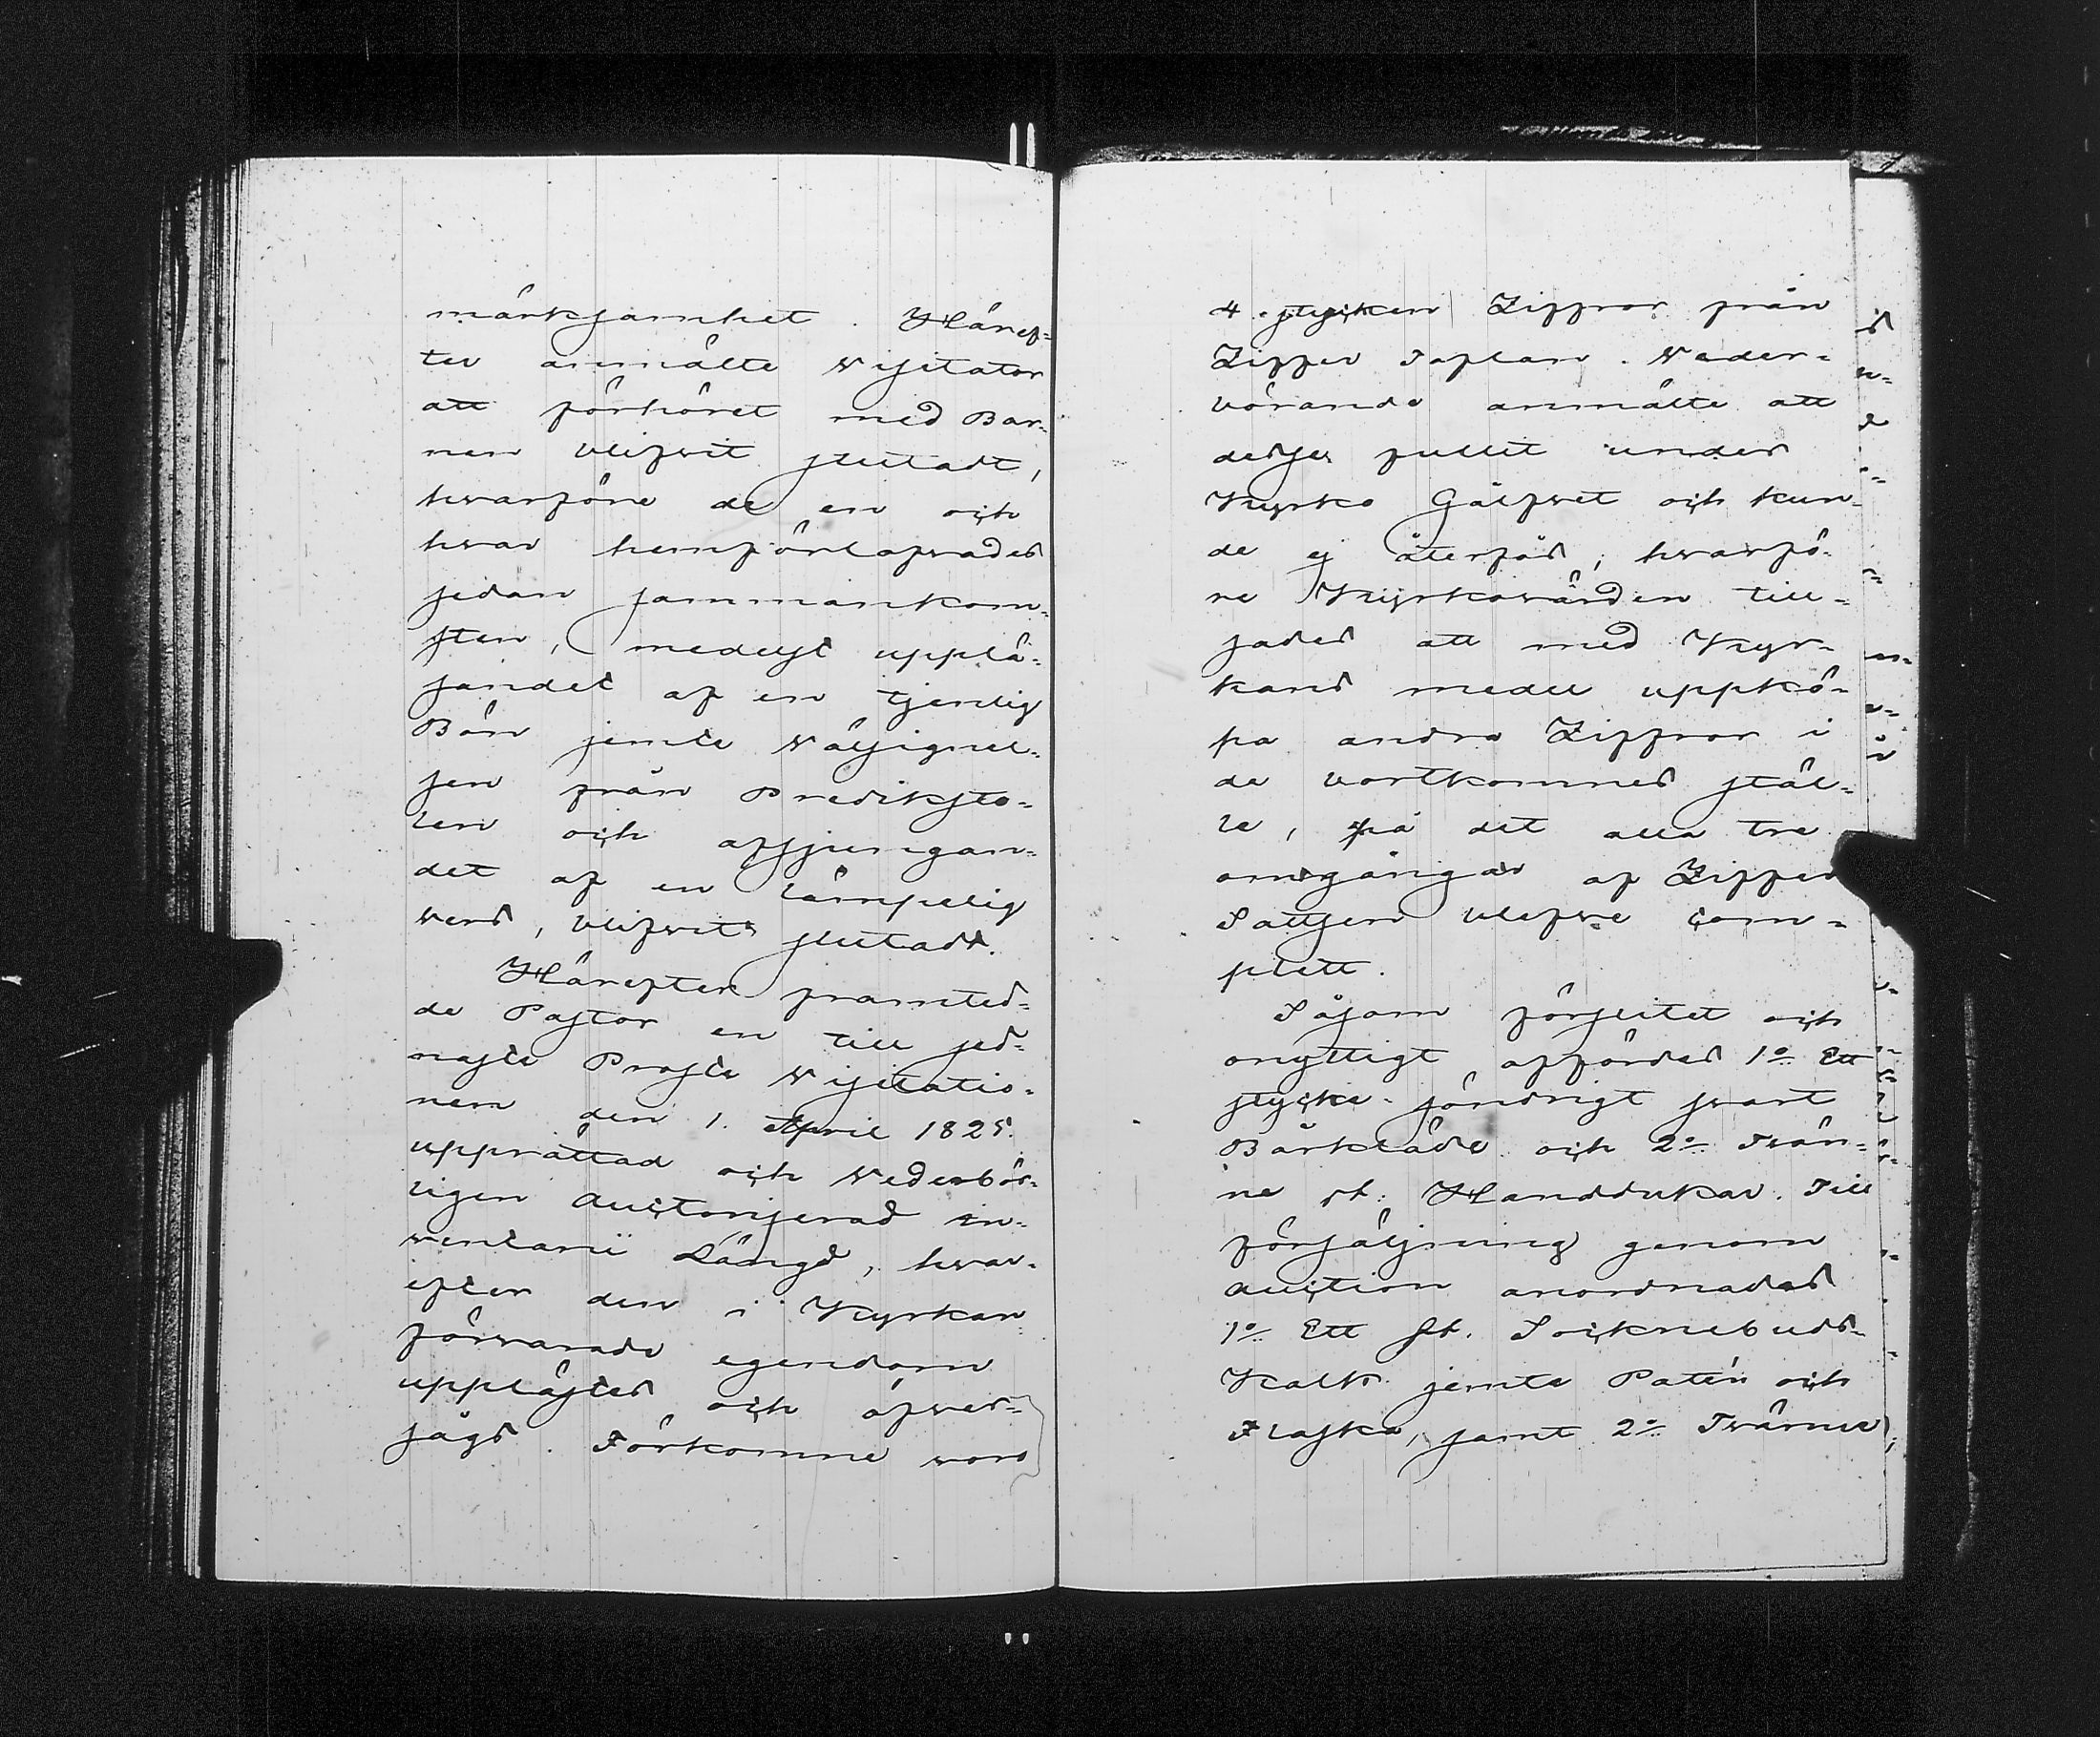 märksamhet. Häref-
ter anmälte Visitator
att förhöret med Bar-
nen blifvit slutadt,
hvarföre de en och
hvar hemförlofvades
sedan sammankom-
sten, medelst upplä-
sandet af en tjenlig
Bön jemte Välsignel-
sen från Prediksto-
len och afsjungan-
det af en lämpelig
vers, blifvit slutadt.
Härefter framted-
de Pastor en till sed-
naste Proste Visitatio-
nen den 1. April 1825.
upprättad och Vederbör-
ligen auctoriserad in-
ventarii Längd, hvar-
efter den i Kyrkan
förvarade egendom
upplästes och öfver-
sågs. Förkomne voro
4 stycken Ziffror från
Ziffer Taflan. Veder-
börande anmälte att
desse fallit under
Kyrko Gålfvet och kun-
de ej återfås; hvarfö-
re Kyrkovärden till-
sades att med Kyr-
kans medel uppkö-
pa andra Ziffror i
de bortkomnes stäl-
le, på det alla tre
omgångar af Ziffer
Satsen blefve com-
plett.
Såsom förslitet och
onyttigt affördes 1:o Ett
stycke söndrigt svart
Bårkläde och 2:o Tvän-
ne st. Handdukar. Till
försäljning genom
auction anordnades
1:o Ett st. Socknebuds-
Kalk jemte Patén och
Flaska, samt 2:o Tvänne